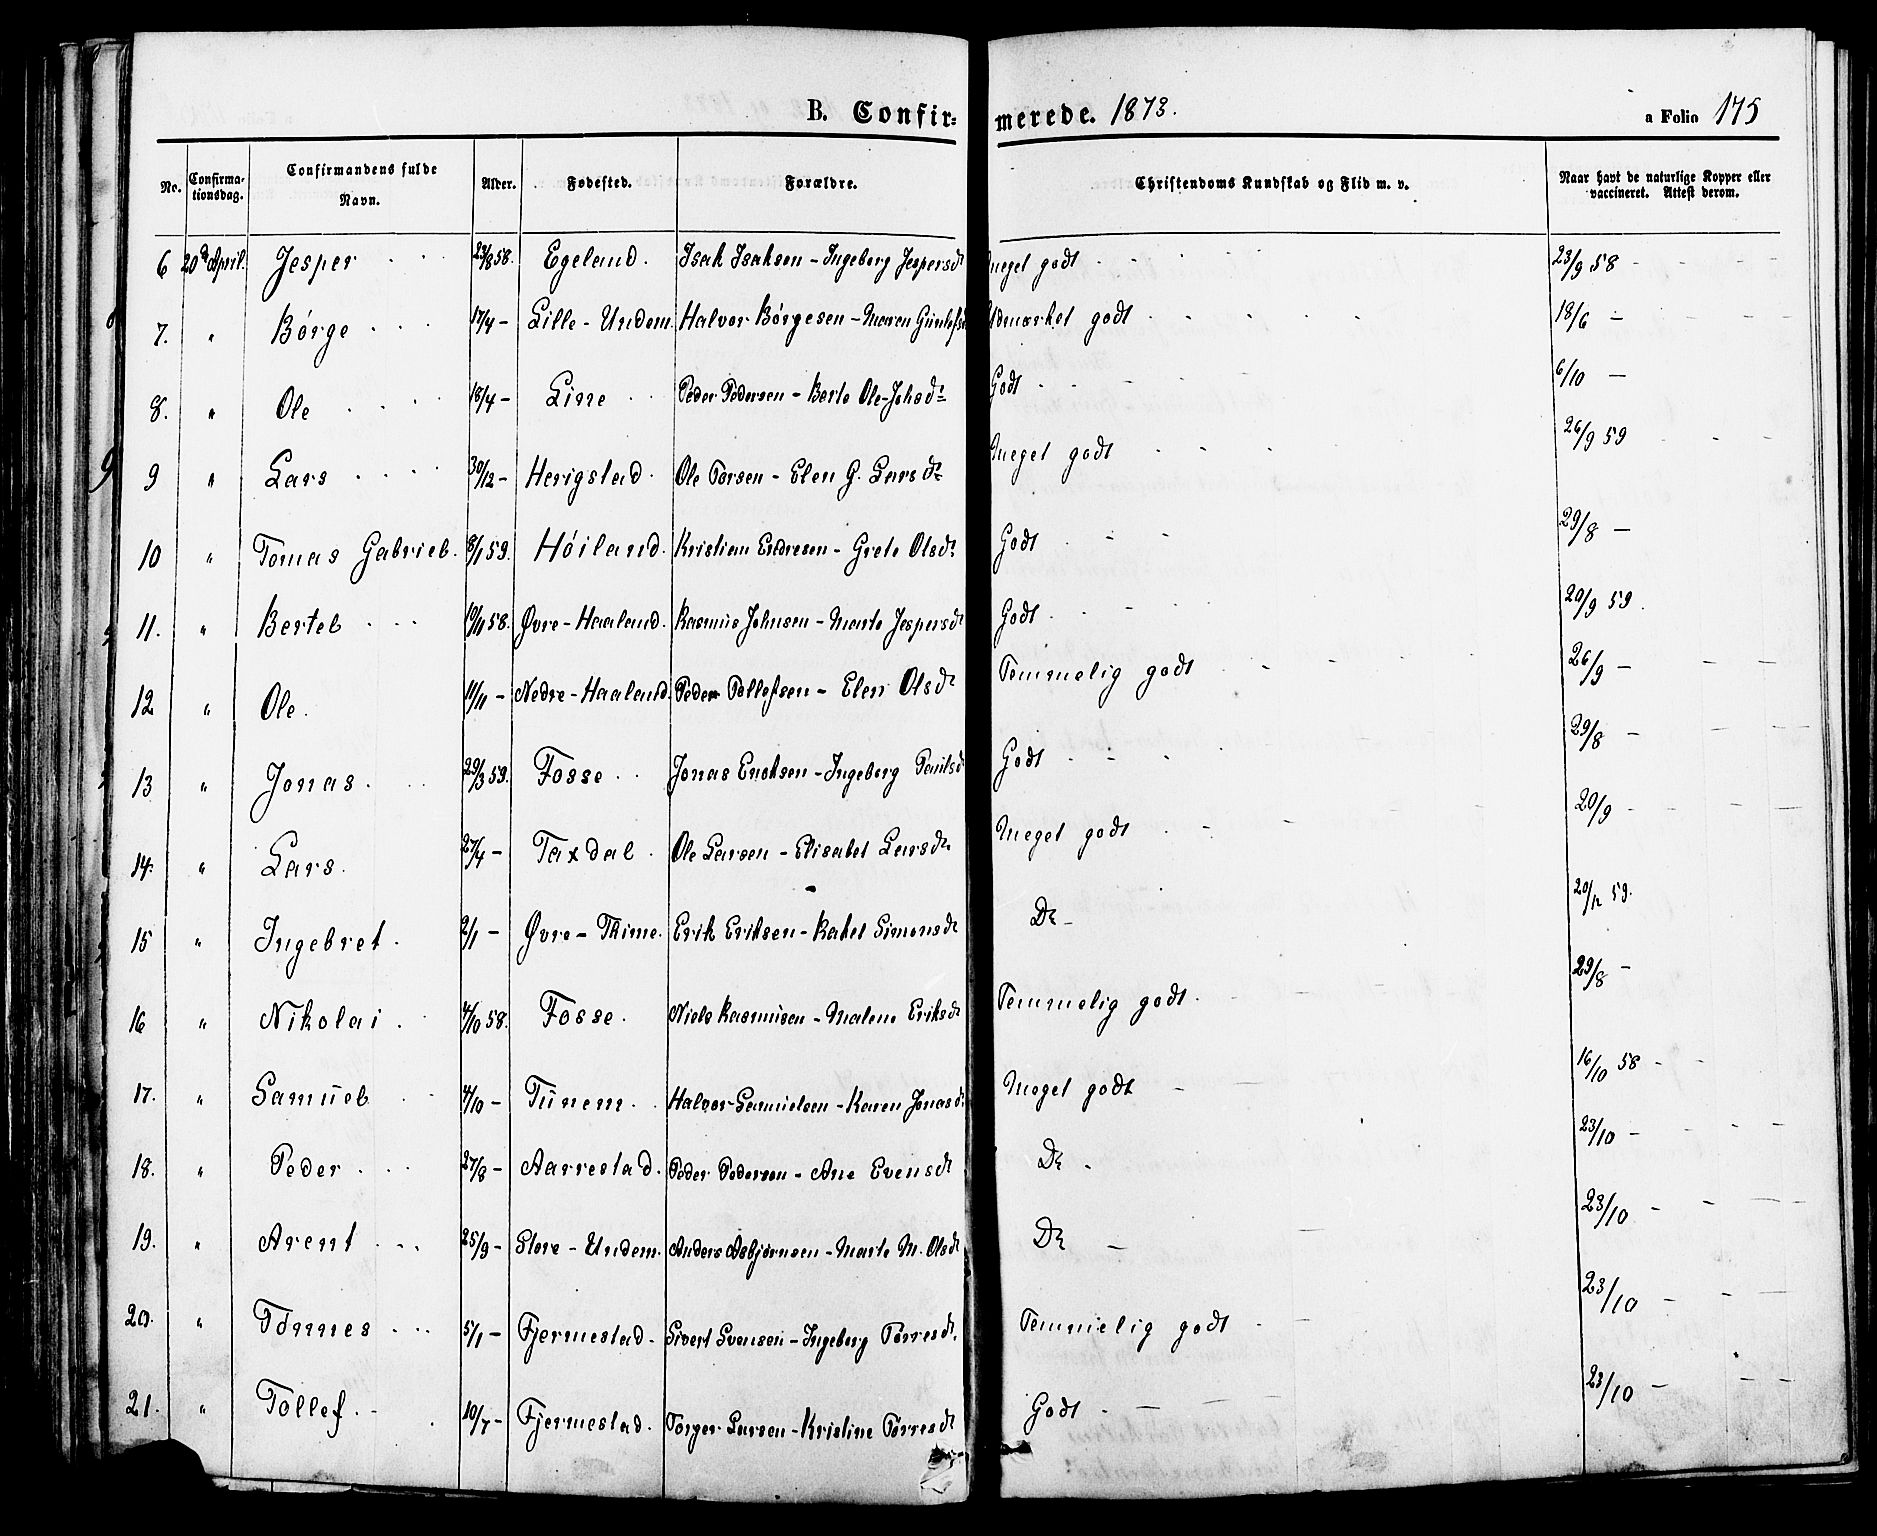 B. Confir= merede. 1873. a Folio 175
No. Confirma-tionsdag. Confirmandens fulde Navn. Alder. Fødested. Forældre. Christendoms Kundskab og Flid m. v. Naar havt de naturlige Kopper eller vaccineret. Attest derom.
6 20de April. Jesper 23/8 58. Egeland. Isak Isaksen - Ingeborg Jespersdt Meget godt 23/9 58
7. " Børge 17/4 - Lille-Undem. Halvor Børgesen - Maren Udmærket godt 18/6 -
8. " Ole 18/4 - Line Peder Pedersen - Berte Ole-Johsdt Godt 6/10 -
9 " Lars 30/12 - Herigstad. Ole Torsen - Elen G. Larsdt Meget godt 26/9 59
10 " Tomas Gabriel. 8/1 59. Høiland. Kristian Endresen - Grete Olsdt Godt 29/8 -
11. " Bertel 10/11 58. Øvre-Haaland. Rasmus Johnsen - Marte Jespersdt Godt 20/9 59.
12 " Ole. 11/11 - Nedre-Haaland Peder Tollefsen - Elen Olsdt Temmelig godt 26/9 -
13 " Jonas. 29/3 59. Fosse Jonas Enoksen - Ingeborg Paulsd Godt 29/8 -
14. " Lars. 27/4 - Taxdal. Ole Larsen - Elisabet Larsdt. Meget godt 20/9 -
15 " Ingebret. 2/1 - Øvre-Thime. Erik Eriksen - Rakel Simonsdt Do - 20/12 59.
16 " Nikolai. 4/10 58. Fosse. Niels Rasmusen - Malene Eriksdt Temmelig godt. 29/8 -
17. " Samuel 4/10 - Tunem. Halvor Samuelsen - Karen Jonasdt Meget godt 16/10 58
18. " Peder 27/8 - Aarrestad. Peder Pedersen - Ane Evensdt Do. 23/10 -
19. " Arent 25/9 - Store-Undem. Anders Asbjørnsen - Marte M. Olsdt Do - 23/10 -
20. " Tønnes 5/1 - Fjermestad. Sivert Svensen - Ingeborg Torresdt. Temmelig godt 23/10 -
21. " Tollef. 10/7 - Fjermestad. Torger Larsen - Kristine Torresdt Godt 23/10 -